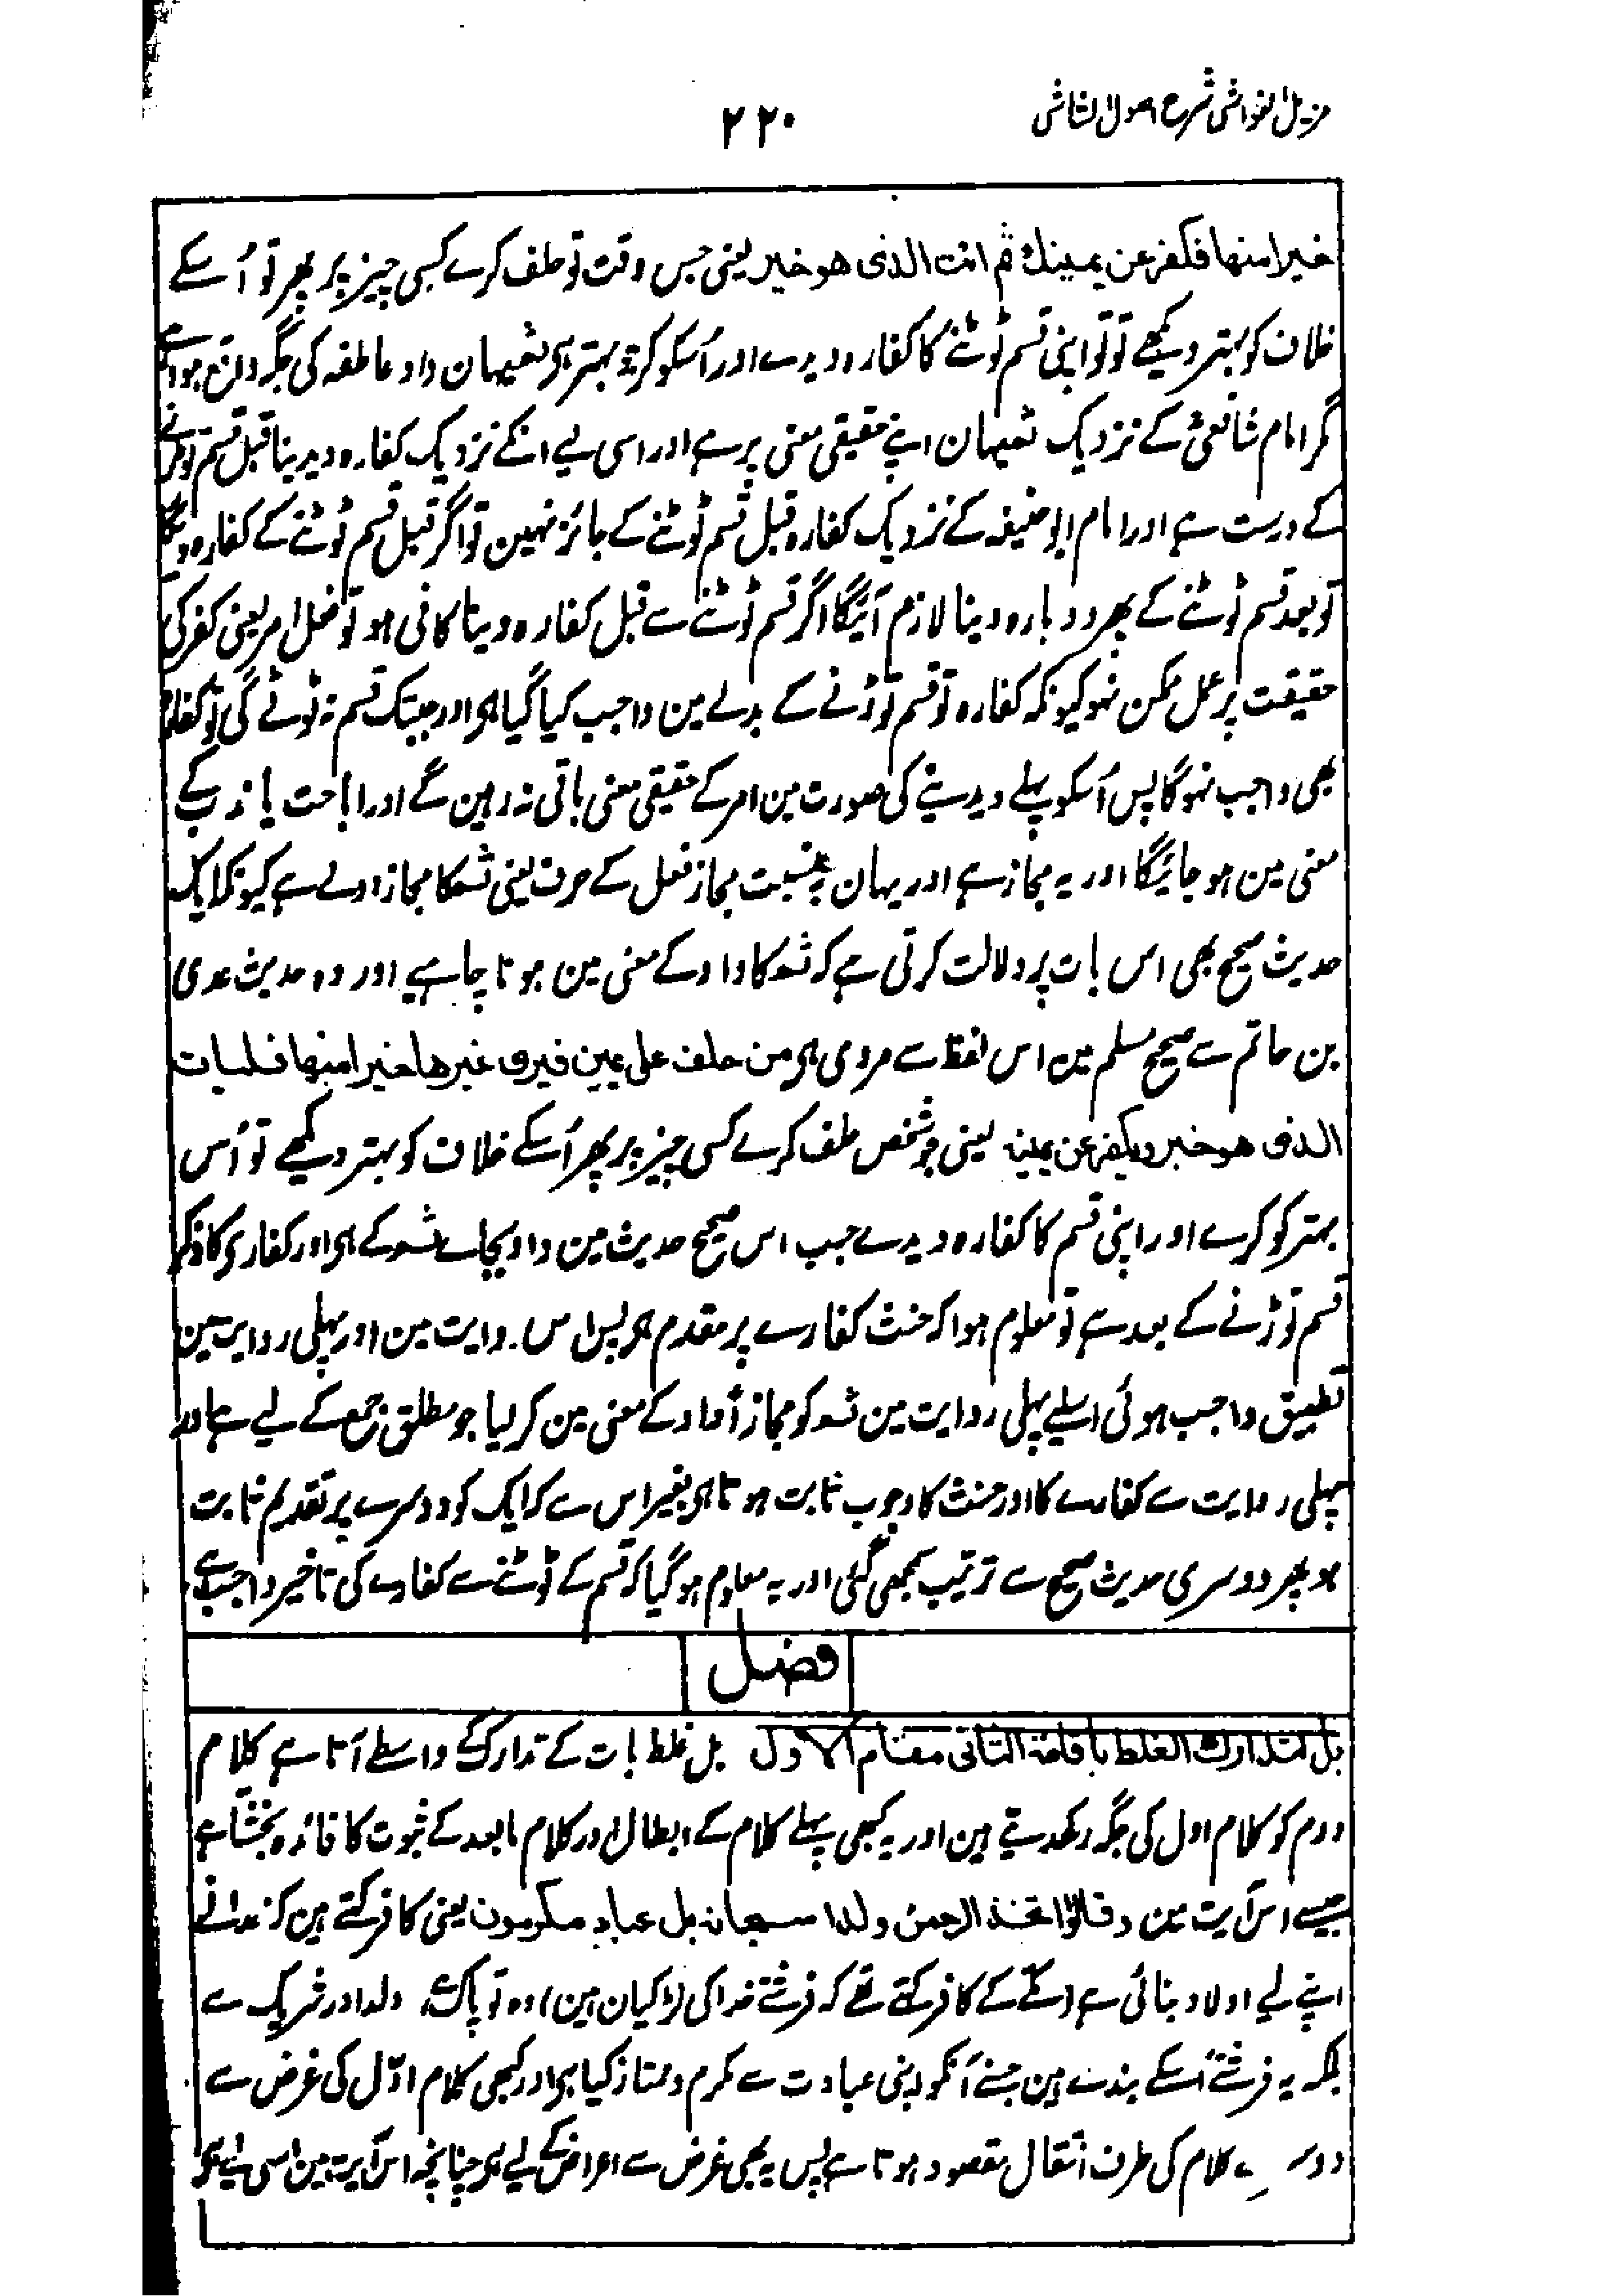 مزیل الغواشی شرح اصول الشاشی
۲۲۰
خیرا منها فکفر عن یمینك ثم ائت الذی هو خیر یعنی جس وقت تو حلف کرے کسی چیز پر پھر تو اُسکے
خلاف کو بہتر دیکھے تو تو اپنی قسم ٹوٹنے کا کفارہ دیدے اور اُسکو کر جو بہتر ہی ثم یہان واو عاطفہ کی جگہ واقع ہوا ہے
مگر امام شافعیؒ کے نزدیک ثم یہان اپنے حقیقی معنی پر ہے اور اسی لیے انکے نزدیک کفارہ دیدینا قبل قسم توڑنے
کے درست ہے اور امام ابو حنیفہ کے نزدیک کفارہ قبل قسم ٹوٹنے کے جائز نہین تو اگر قبل قسم ٹوٹنے کے کفارہ دیگا
تو بعد قسم ٹوٹنے کے پھر دوبارہ دینا لازم آئیگا اگر قسم ٹوٹنے سے قبل کفارہ دینا کافی ہو تو فعل امر یعنی کفر کی
حقیقت پر عمل ممکن نہو کیونکہ کفارہ تو قسم توڑنے کے بدلے مین واجب کیا گیا ہی اور جبتک قسم نہ ٹوٹے گی تو کفارہ
بھی واجب نہوگا پس اُسکو پہلے دیدینے کی صورت مین امر کے حقیقی معنی باقی نہ رہین گے اور اباحت یا ندب کے
معنی مین ہو جائیگا اور یہ مجاز ہے اور یہان بہ نسبت مجاز فعل کے حرف یعنی ثم کا مجاز اولے ہے کیونکہ ایک
حدیث صحیح بھی اس بات پر دلالت کرتی ہے کہ ثم کا واو کے معنی مین ہونا چاہیے اور وہ حدیث عدی
بن حاتم سے صحیح مسلم مین اس لفظ سے مروی ہی من حلف علی یمین فیری غیرها خیرا منها فلیات
الذی هو خیر ویکفر عن یمینه یعنی جو شخص حلف کرے کسی چیز پر پھر اُسکے خلاف کو بہتر دیکھے تو اُس
بہتر کو کرے اور اپنی قسم کا کفارہ دیدے جب اس صحیح حدیث مین واو بجاے ثم کے ہی اور کفارے کا ذکر
قسم توڑنے کے بعد ہے تو معلوم ہوا کہ حنث کفارے پر مقدم ہی پس اس روایت مین اور پہلی روایت مین
تطبیق واجب ہوئی اسلیے پہلی روایت مین ثم کو مجازاً واو کے معنی مین کر لیا جو مطلق جمع کے لیے ہے اور
پہلی روایت سے کفارے کا اور حنث کا وجوب ثابت ہوتا ہی بغیر اس سے کہ ایک کو دوسرے پر تقدیم ثابت
ہو پھر دوسری حدیث صحیح سے ترتیب سمجھی گئی اور یہ معلوم ہو گیا کہ قسم کے ٹوٹنے سے کفارے کی تاخیر واجب ہے
فصل
بل لتدارك الغلط باقامة الثانی مقام الاول بل غلط بات کے تدارک کے واسطے آتا ہے کلام
دوم کو کلام اول کی جگہ رکھدیتے ہین اور یہ کبھی پہلے کلام کے ابطال اور کلام مابعد کے ثبوت کا فائدہ بخشتا ہے
جیسے اس آیت مین وقالوا اتخذ الرحمن ولدا سبحانه بل عباد مکرمون یعنی کافر کہتے ہین کہ خدا نے
اپنے لیے اولاد بنائی ہے (مکے کے کافر کہتے تھے کہ فرشتے خدا کی لڑکیان ہین) وہ تو پاک ہے ولد اور شریک سے
بلکہ یہ فرشتے اُسکے بندے ہین جسنے اُنکو اپنی عبادت سے مکرم و ممتاز کیا ہی اور کبھی کلام اوّل کی غرض سے
دوسرے کلام کی طرف انتقال مقصود ہوتا ہے پس یہ بھی غرض سے اعراض کے لیے ہی چنانچہ اس آیت مین اسی لیے ہی